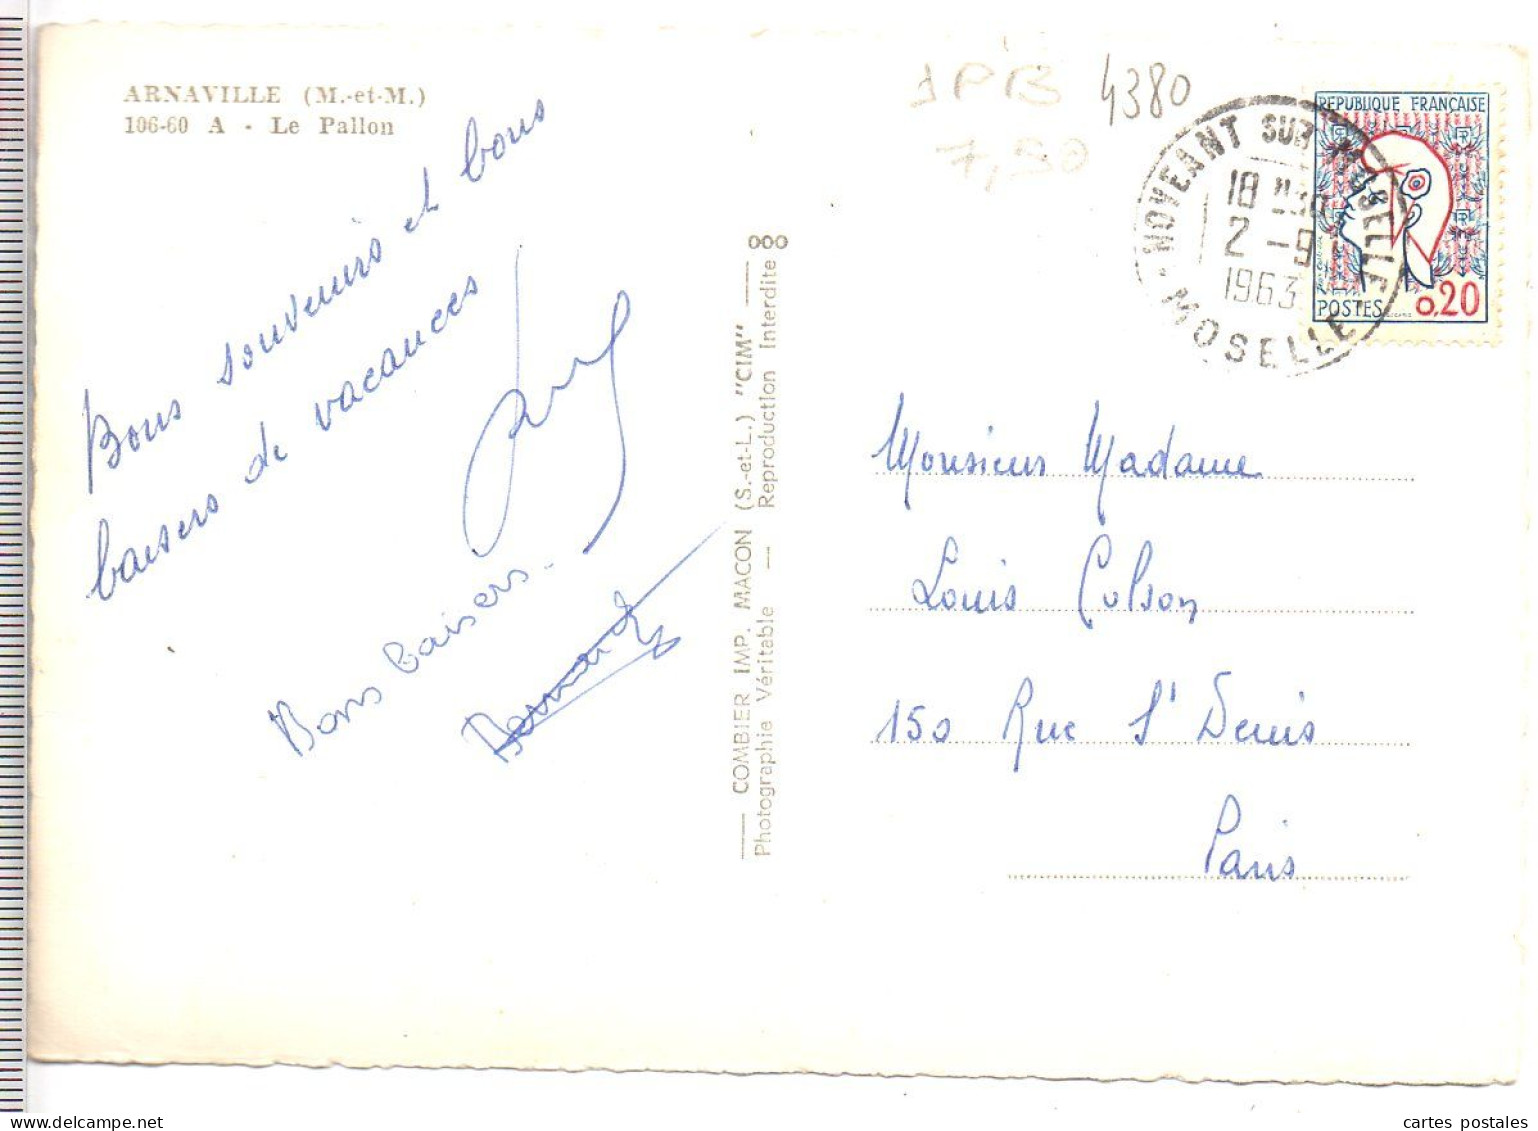 ARNAVILLE (M.-et-M.)
106-60 A - Le Pallon
Bons souvenirs et bons
baisers de vacances
Bons baisers.
COMBIER IMP. MACON (S.-et-L.) "CIM"
Photographie Véritable — Reproduction Interdite
000
1PB
7,90
4380
NOVEANT SUR MOSELLE
18 H30
2 -9
1963
MOSELLE
REPUBLIQUE FRANÇAISE
POSTES
0,20
Monsieur Madame
Louis Colson
150 Rue St Denis
Paris
delcampe.net
cartes postales